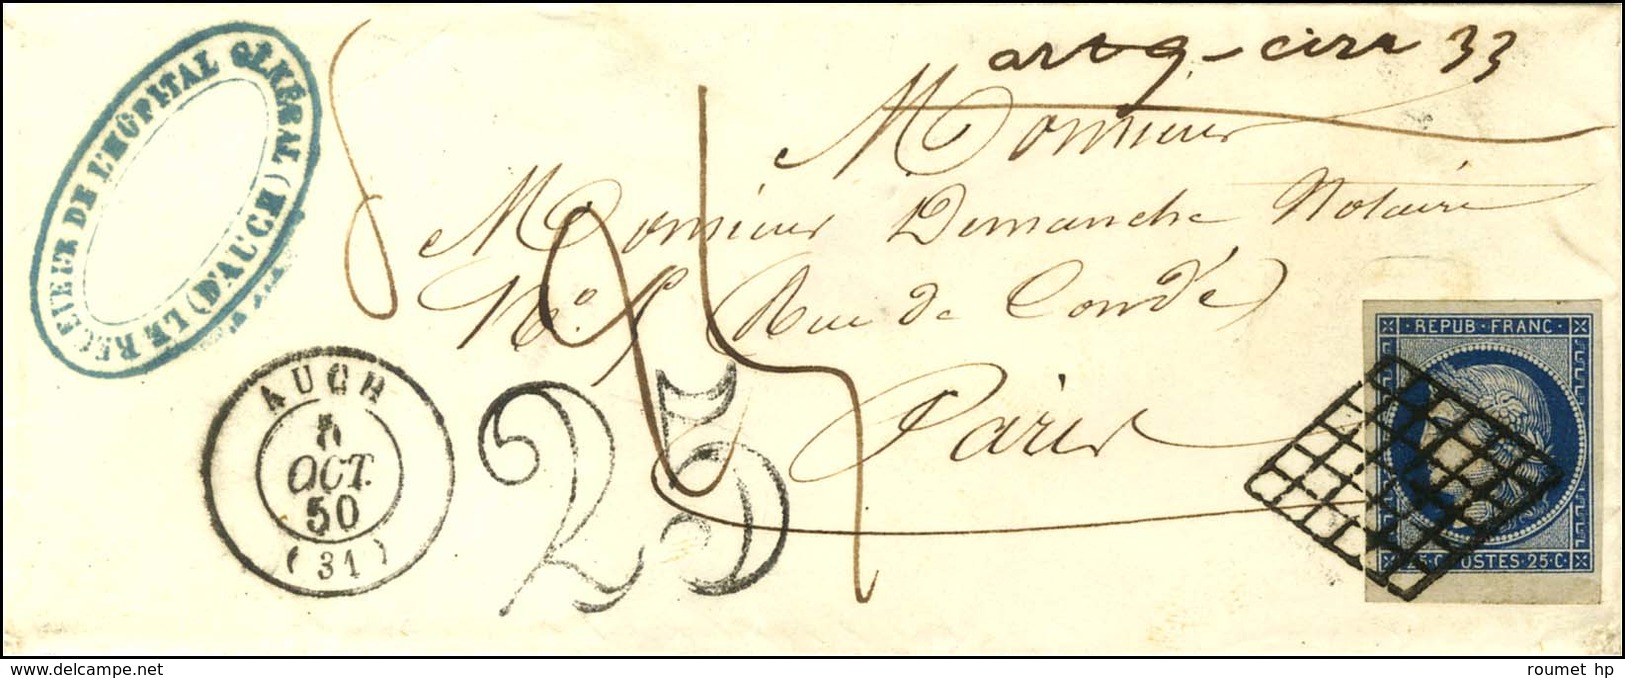 LE RECEVEUR DE L'HÔPITAL GÉNÉRAL (D'AUCH)
33
Monsieur
Monsieur Demanche Notaire
No. 5 Rue de Condé
Paris
25
AUCH
5
OCT.
50
(31)
REPUB·FRANC·
25·C·POSTES·25·C·
roumet hp